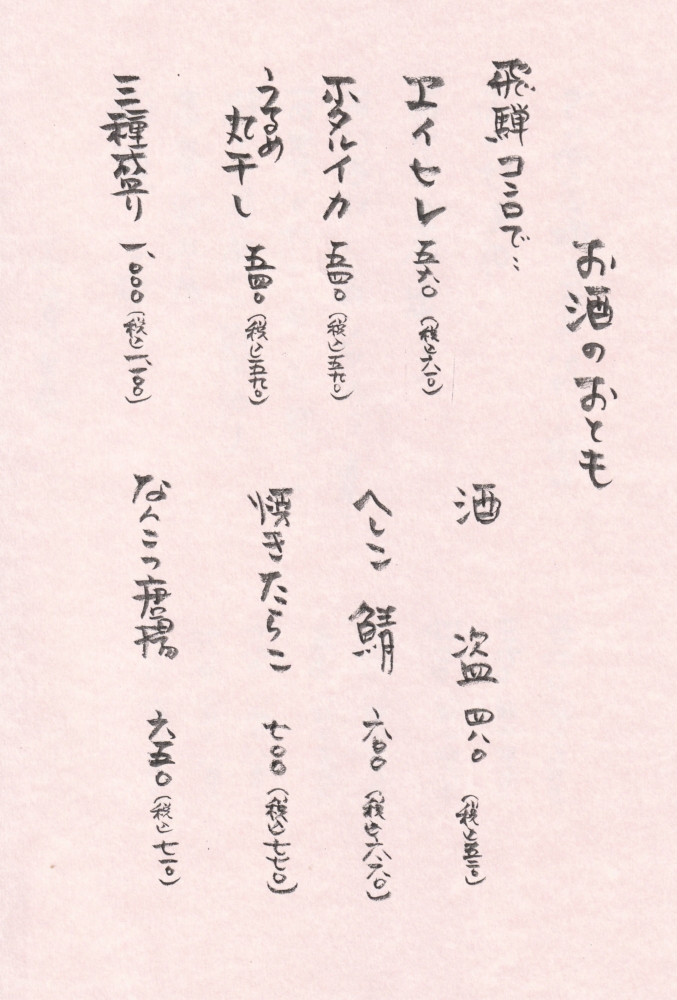 お酒のおとも
飛騨コンロで…
エイヒレ 五六〇（税込六一〇）
ホタルイカ 五四〇（税込五九〇）
うるめ
丸干し 五四〇（税込五九〇）
三種盛り 一、〇〇〇（税込一、一〇〇）
酒盗 四八〇（税込五二〇）
へしこ 鯖 六〇〇（税込六六〇）
焼きたらこ 七〇〇（税込七七〇）
なんこつ唐揚 六五〇（税込七一〇）